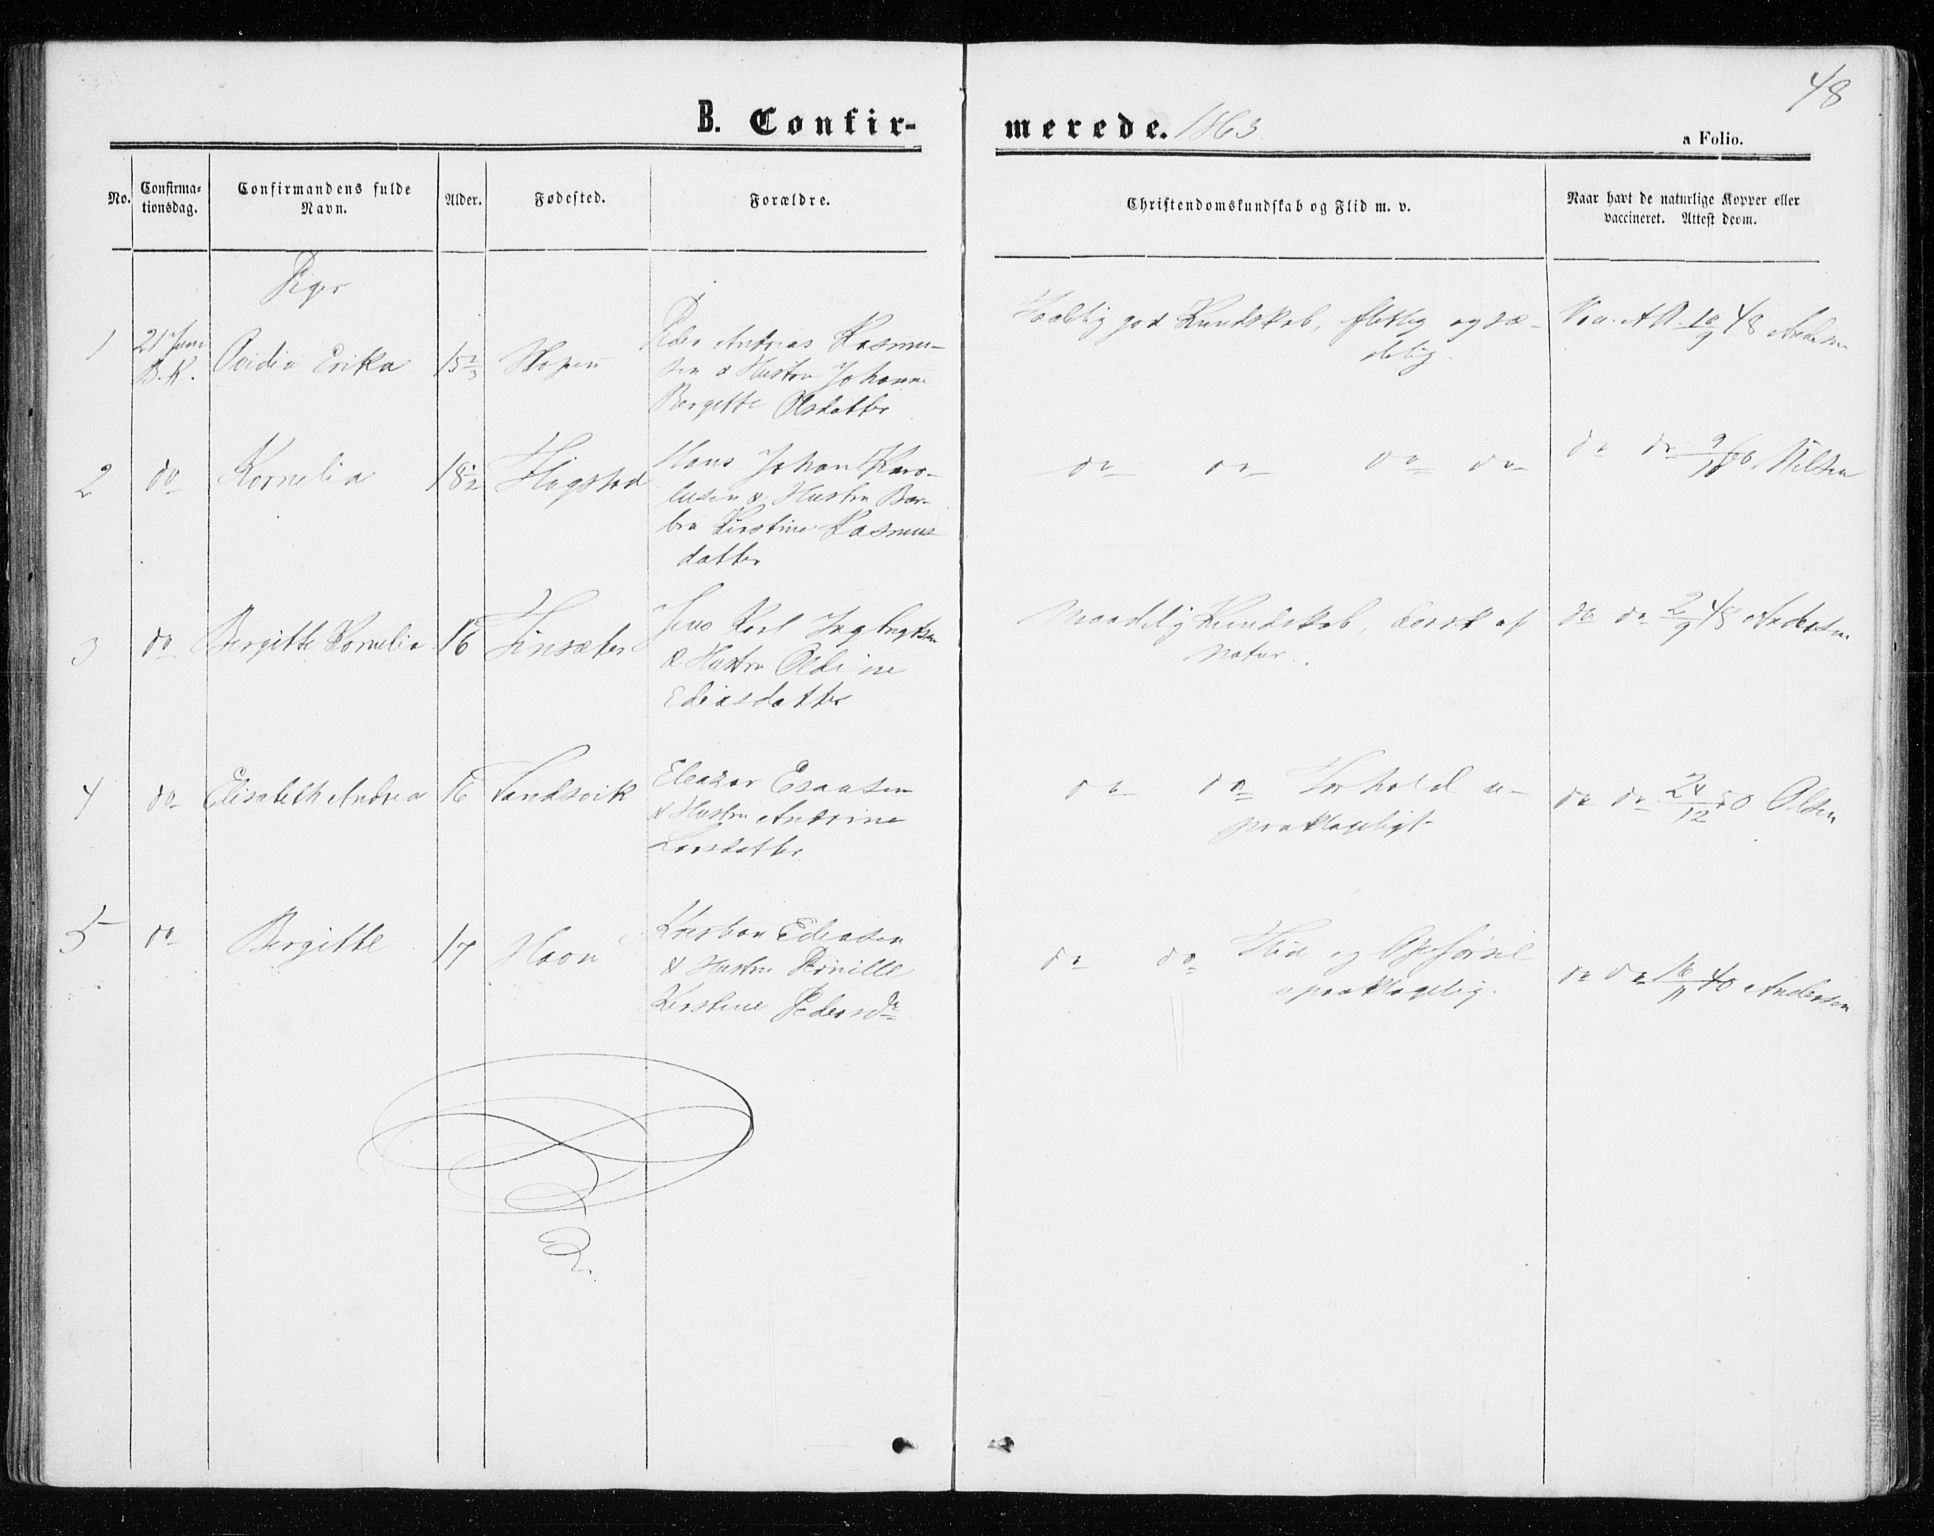 48
B. Confir-
merede. 1863
a Folio.
No.
Confirma-
tionsdag.
Confirmandens fulde
Navn.
Alder.
Fødested.
Forældre.
Christendomskundskab og Flid m. v.
Naar havt de naturlige Kopper eller
vaccineret. Attest derom.
Piger
1
21 Juni
B.K.
Erika
15 2/3
Hopen
Peder Andreas Rasmu-
sen & Hustru Johanna
Bergitte Olsdatter
Kundskab, flittig og sæ-
delig.
48 Andersen
2
do
Kornelia
18 1/2
Hagstad
Hans Johan Karo-
liusen & Hustru Bar-
bra Kirstine Rasmus
datter
do do do do
do do Nilsen
3
do
Bergitte Kornelia
16
Finsæter
Jens Karl Ingbrigtsen
& Hustru
Ediasdatter
Maadelig Kundskab, dorsk af
Natur.
do do 2/9 48 Andersen
4
do
Elisabeth Andrea
16
Sandsvik
Eleazar Esaasen
& Hustru Andrine
Larsdatter
do do Forhold u-
paaklageligt
do do 24/12 50 Olsen
5
do
Bergitte
17
Haon
Kristian Ediasen
& Hustru Pernille
Kirstine Pedersdr
do do Flid og Opførsel
upaaklagelig.
do do 16/11 40 Andersen